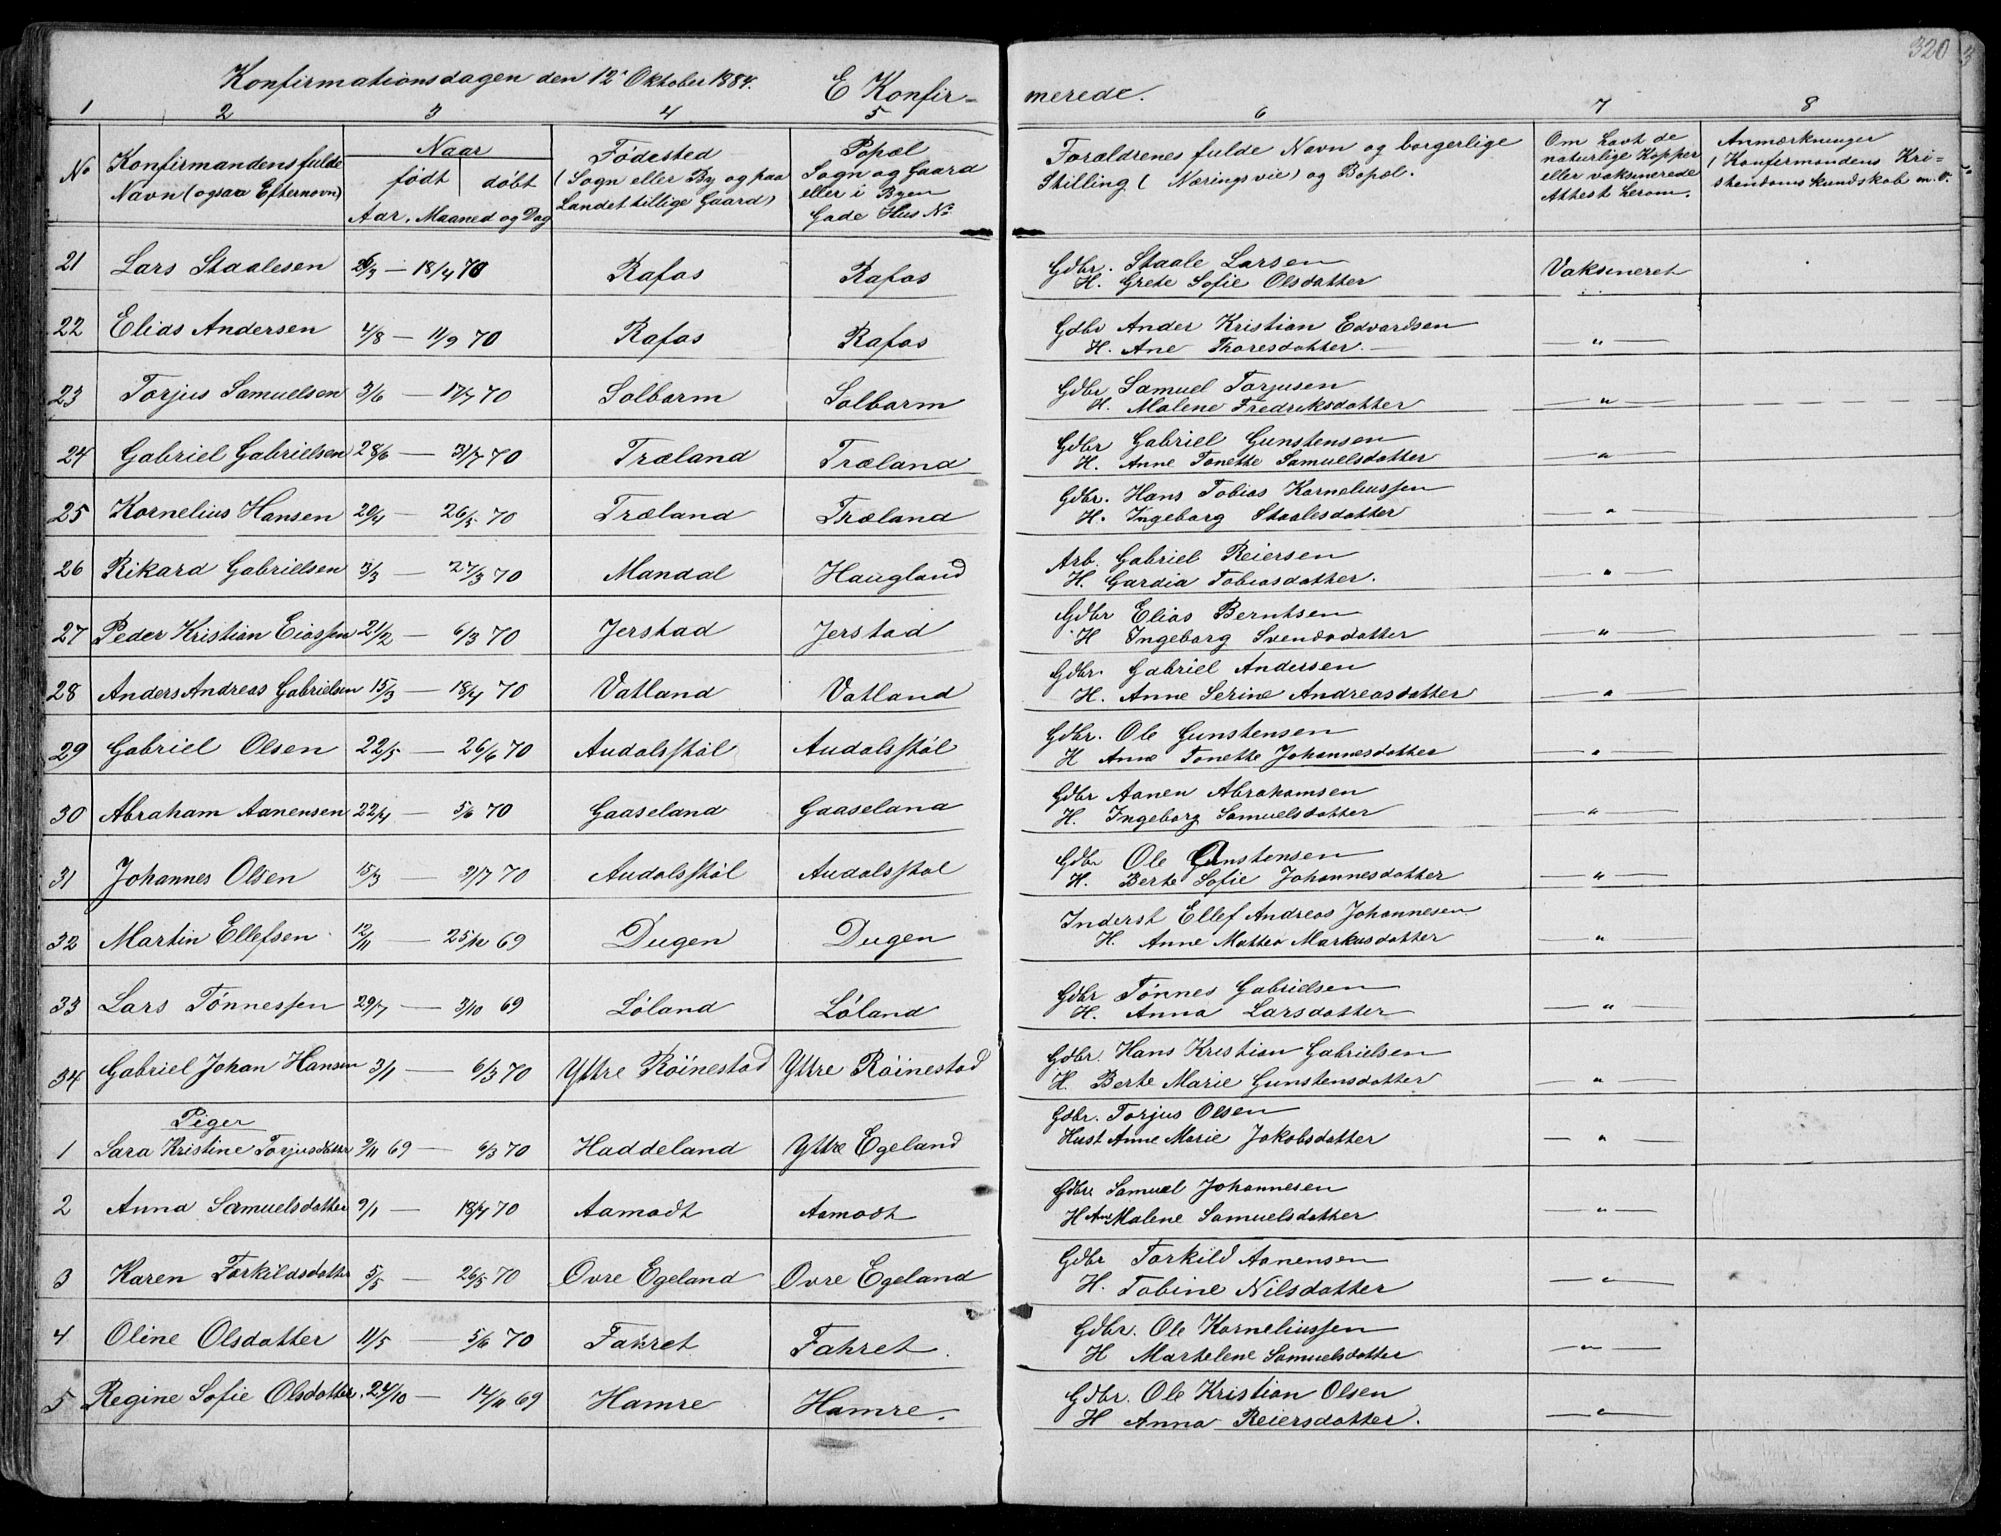 320
Konfirmationsdagen den 12. Oktober 1884. E Konfirmerede.
1 2 3 4 5 6 7 8
No
Konfirmandens fulde
Navn (ogsaa Efternavn)
Naar
født døbt
Aar, Maaned og Dag
Fødested
(Sogn eller By og paa
Landet tillige Gaard)
Popæl
Sogn og Gaard
eller i Byen
Gade Hus No
Forældrenes fulde Navn og borgerlige
Stilling (Næringsvei) og Bopæl.
Om havt de
naturlige Kopper
eller vaksinerede
Attest herom.
Anmærkninger
(Konfirmandens Kri=
stendomskundskab m. v.
21 Lars Staalesen 26/3 — 18/4 70 Rafos Rafos Gdbr. Staale Larsen Vaksineret
H. Grete Sofie Olsdatter
22 Elias Andersen 4/8 — 11/9 70 Rafos Rafos Gdbr Ander Kristian Edvardsen
H. Ane Thoresdatter. — " —
23 Torjus Samuelsen 3/6 — 17/7 70 Solbarm Solbarm Gdbr Samuel Torjusen
H. Malene Fredriksdatter — " —
24 Gabriel Gabrielsen 28/6 — 31/7 70 Træland Træland Gdbr Gabriel Gunstensen
H. Anne Tonette Samuelsdatter — " —
25 Kornelius Hansen 20/4 — 26/5 70 Træland Træland Gdbr. Hans Tobias Korneliussen
H. Ingeborg Staalesdatter — " —
26 Rikard Gabrielsen 3/3 — 27/3 70 Mandal Haugland Arb. Gabriel Reiersen
H. Gardia Tobiasdatter. — " —
27 Peder Kristian Eiassen 21/2 — 6/3 70 Jerstad Jerstad Gdbr Elias Berntsen
H Ingeborg Svendsdatter — " —
28 Anders Andreas Gabrielsen 15/3 — 18/4 70 Vatland Vatland Gdbr. Gabriel Andersen
H. Anne Serine Andreasdatter — " —
29 Gabriel Olsen 22/5 — 26/6 70 Audalsstøl Audalsstøl Gdbr. Ole Gunstensen
H Anne Tonette Johannesdatter — " —
30 Abraham Aanensen 22/4 — 5/6 70 Gaaseland Gaaseland Gdbr Aanen Abrahamsen
H. Ingeborg Samuelsdatter — " —
31 Johannes Olsen 15/3 — 2/7 70 Audalsstøl Audalsstøl Gdbr Ole Gunstensen
H. Berte Sofie Johannesdatter — " —
32 Martin Ellefsen 12/11 — 25/12 69 Dugen Dugen Inderst Ellef Andreas Johannesen
H. Anne Mattea Markusdatter — " —
33 Lars Tønnessen 29/7 — 3/10 69 Løland Løland Gdbr Tønnes Gabrielsen
H. Anna Larsdatter — " —
34 Gabriel Johan Hansen 3/1 — 6/3 70 Yttre Røinestad Yttre Røinestad Gdbr. Hans Kristian Gabrielsen
H. Berte Marie Gunstensdatter — " —
Piger
1 Sara Kristine Torjusdatter 9/11 69 — 6/3 70 Haddeland Yttre Egeland Gdbr. Torjus Olsen
Hust Anne Marie Jakobsdatter — " —
2 Anna Samuelsdatter 2/1 — 18/4 70 Aamodt Aamodt Gdbr Samuel Johannesen
H Ane Malene Samuelsdatter — " —
3 Karen Torkildsdatter 5/5 — 26/5 70 Øvre Egeland Øvre Egeland Gdbr Torkild Aanensen
H. Tobine Nilsdatter — " —
4 Oline Olsdatter 11/5 — 5/6 70 Fahret Fahret Gdbr. Ole Korneliussen
H Martelene Samuelsdatter — " —
5 Regine Sofie Olsdatter. 24/10 — 14/11 69 Hamre Hamre. Gdbr. Ole Kristian Olsen
H Anna Reiersdatter. — " —